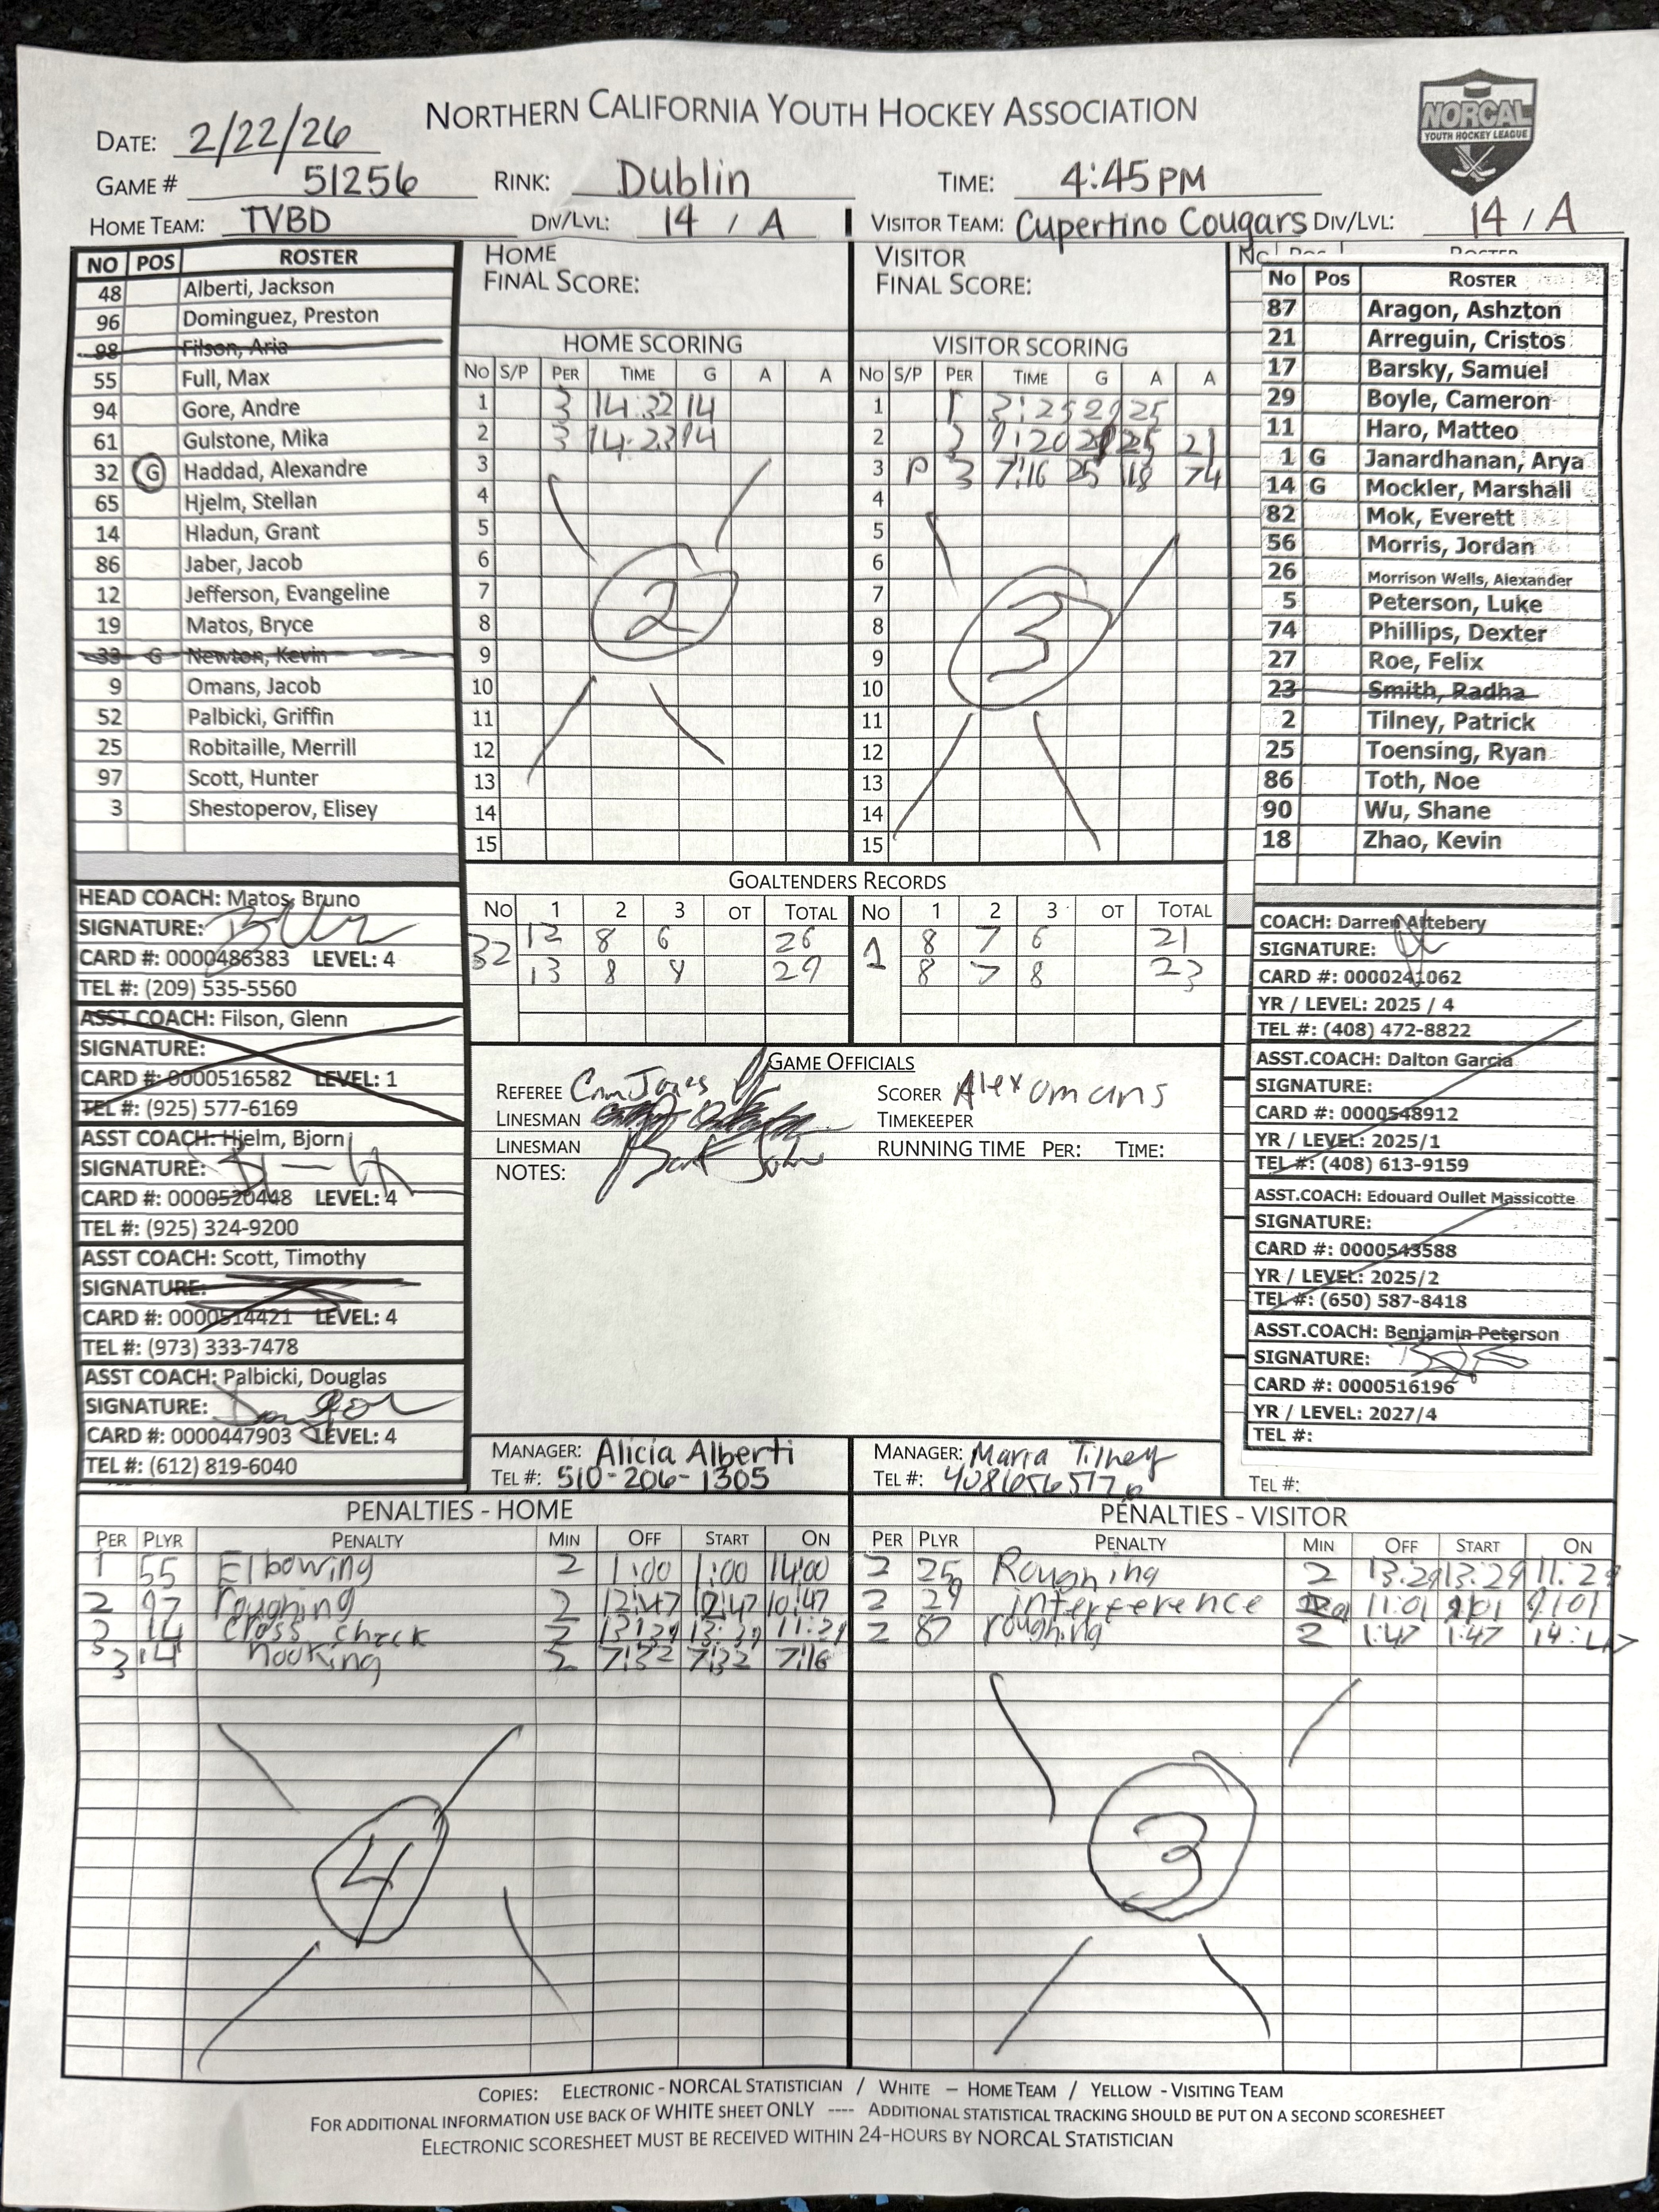 NORTHERN CALIFORNIA YOUTH HOCKEY ASSOCIATION
NORCAL
YOUTH HOCKEY LEAGUE
DATE: 2/22/26
GAME # 51256 RINK: Dublin TIME: 4:45 PM
HOME TEAM: TVBD DIV/LVL: 14 / A VISITOR TEAM: Cupertino Cougars DIV/LVL: 14 / A
NO POS ROSTER
48 Alberti, Jackson
96 Dominguez, Preston
98 Filson, Aria
55 Full, Max
94 Gore, Andre
61 Gulstone, Mika
32 G Haddad, Alexandre
65 Hjelm, Stellan
14 Hladun, Grant
86 Jaber, Jacob
12 Jefferson, Evangeline
19 Matos, Bryce
33 G Newton, Kevin
9 Omans, Jacob
52 Palbicki, Griffin
25 Robitaille, Merrill
97 Scott, Hunter
3 Shestoperov, Elisey
HEAD COACH: Matos, Bruno
SIGNATURE:
CARD #: 0000486383 LEVEL: 4
TEL #: (209) 535-5560
ASST COACH: Filson, Glenn
SIGNATURE:
CARD #: 0000516582 LEVEL: 1
TEL #: (925) 577-6169
ASST COACH: Hjelm, Bjorn
SIGNATURE:
CARD #: 0000520448 LEVEL: 4
TEL #: (925) 324-9200
ASST COACH: Scott, Timothy
SIGNATURE:
CARD #: 0000514421 LEVEL: 4
TEL #: (973) 333-7478
ASST COACH: Palbicki, Douglas
SIGNATURE:
CARD #: 0000447903 LEVEL: 4
TEL #: (612) 819-6040
HOME
FINAL SCORE:
HOME SCORING
NO S/P PER TIME G A A
1 3 14:32 14
2 3 14:23 14
3
4
5
6
7
8
9
10
11
12
13
14
15
2
VISITOR
FINAL SCORE:
VISITOR SCORING
NO S/P PER TIME G A A
1 1 3:25 29 25
2 9:20 25 21
3 P 3 7:16 25 18 74
4
5
6
7
8
9
10
11
12
13
14
15
3
GOALTENDERS RECORDS
NO 1 2 3 OT TOTAL NO 1 2 3 OT TOTAL
32 12 8 6 26 1 8 7 6 21
13 8 8 29 8 7 8 23
GAME OFFICIALS
REFEREE SCORER Alex omans
LINESMAN TIMEKEEPER
LINESMAN RUNNING TIME PER: TIME:
NOTES:
MANAGER: Alicia Alberti MANAGER: Maria Tilney
TEL #: 510-206-1305 TEL #:
No Pos ROSTER
No Pos ROSTER
87 Aragon, Ashzton
21 Arreguin, Cristos
17 Barsky, Samuel
29 Boyle, Cameron
11 Haro, Matteo
1 G Janardhanan, Arya
14 G Mockler, Marshall
82 Mok, Everett
56 Morris, Jordan
26 Morrison Wells, Alexander
5 Peterson, Luke
74 Phillips, Dexter
27 Roe, Felix
23 Smith, Radha
2 Tilney, Patrick
25 Toensing, Ryan
86 Toth, Noe
90 Wu, Shane
18 Zhao, Kevin
COACH: Darren Attebery
SIGNATURE:
CARD #: 0000241062
YR / LEVEL: 2025 / 4
TEL #: (408) 472-8822
ASST.COACH: Dalton Garcia
SIGNATURE:
CARD #: 0000548912
YR / LEVEL: 2025/1
TEL #: (408) 613-9159
ASST.COACH: Edouard Oullet Massicotte
SIGNATURE:
CARD #: 0000543588
YR / LEVEL: 2025/2
TEL #: (650) 587-8418
ASST.COACH: Benjamin Peterson
SIGNATURE:
CARD #: 0000516196
YR / LEVEL: 2027/4
TEL #:
TEL #:
PENALTIES - HOME
PER PLYR PENALTY MIN OFF START ON
1 55 Elbowing 2 1:00 1:00 14:00
2 97 roughing 2 12:47 12:47 10:47
14 cross check 2 13:29 13:29 11:29
3 14 hooking 2 7:32 7:32 7:16
4
PENALTIES - VISITOR
PER PLYR PENALTY MIN OFF START ON
2 25 Roughing 2 13:29 13:29 11:29
2 29 interference 11:01 9:01
2 87 roughing 2 1:47 1:47 14:47
3
COPIES: ELECTRONIC - NORCAL STATISTICIAN / WHITE – HOME TEAM / YELLOW - VISITING TEAM
FOR ADDITIONAL INFORMATION USE BACK OF WHITE SHEET ONLY ---- ADDITIONAL STATISTICAL TRACKING SHOULD BE PUT ON A SECOND SCORESHEET
ELECTRONIC SCORESHEET MUST BE RECEIVED WITHIN 24-HOURS BY NORCAL STATISTICIAN